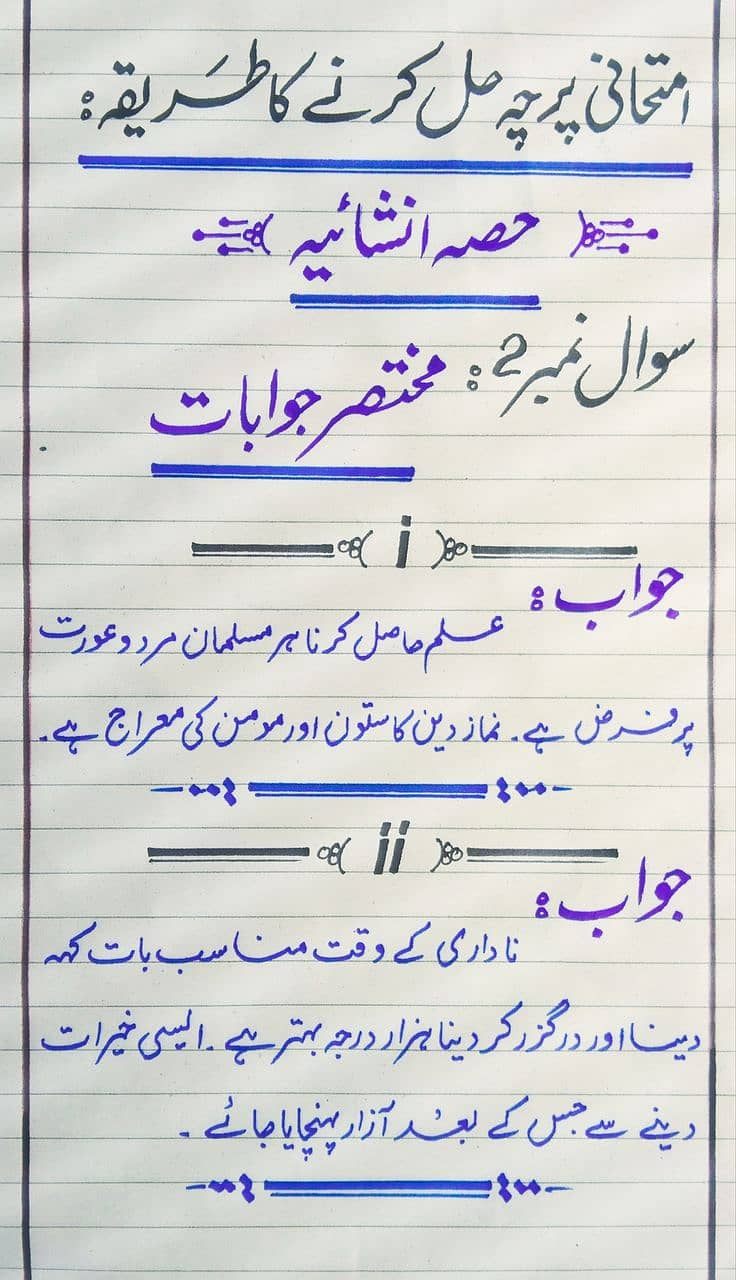 امتحانی پرچہ حل کرنے کا طَریقہ:
حصہ انشائیہ
سوال نمبر 2: مختصر جوابات
i
جواب:
علم حاصل کرنا ہر مسلمان مرد و عورت
پر فرض ہے۔ نماز دین کا ستون اور مومن کی معراج ہے۔
ii
جواب:
ناداری کے وقت مناسب بات کہہ
دینا اور درگزر کر دینا ہزار درجہ بہتر ہے۔ ایسی خیرات
دینے سے جس کے بعد آزار پہنچایا جائے۔